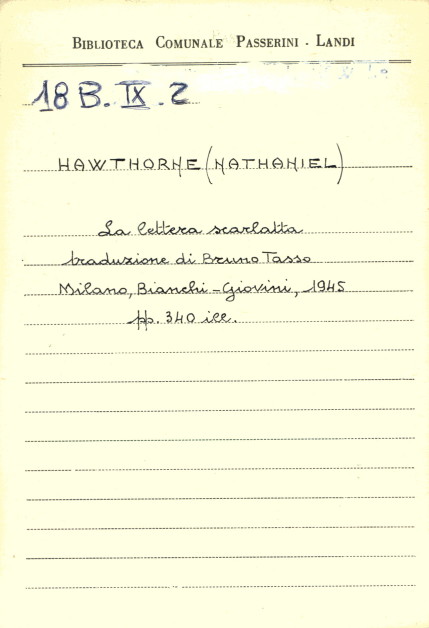 BIBLIOTECA COMUNALE PASSERINI - LANDI
18 B. IX. 2
HAWTHORNE (NATHANIEL)
La lettera scarlatta
traduzione di Bruno Tasso
Milano, Bianchi-Giovini, 1945
pp. 340 ill.